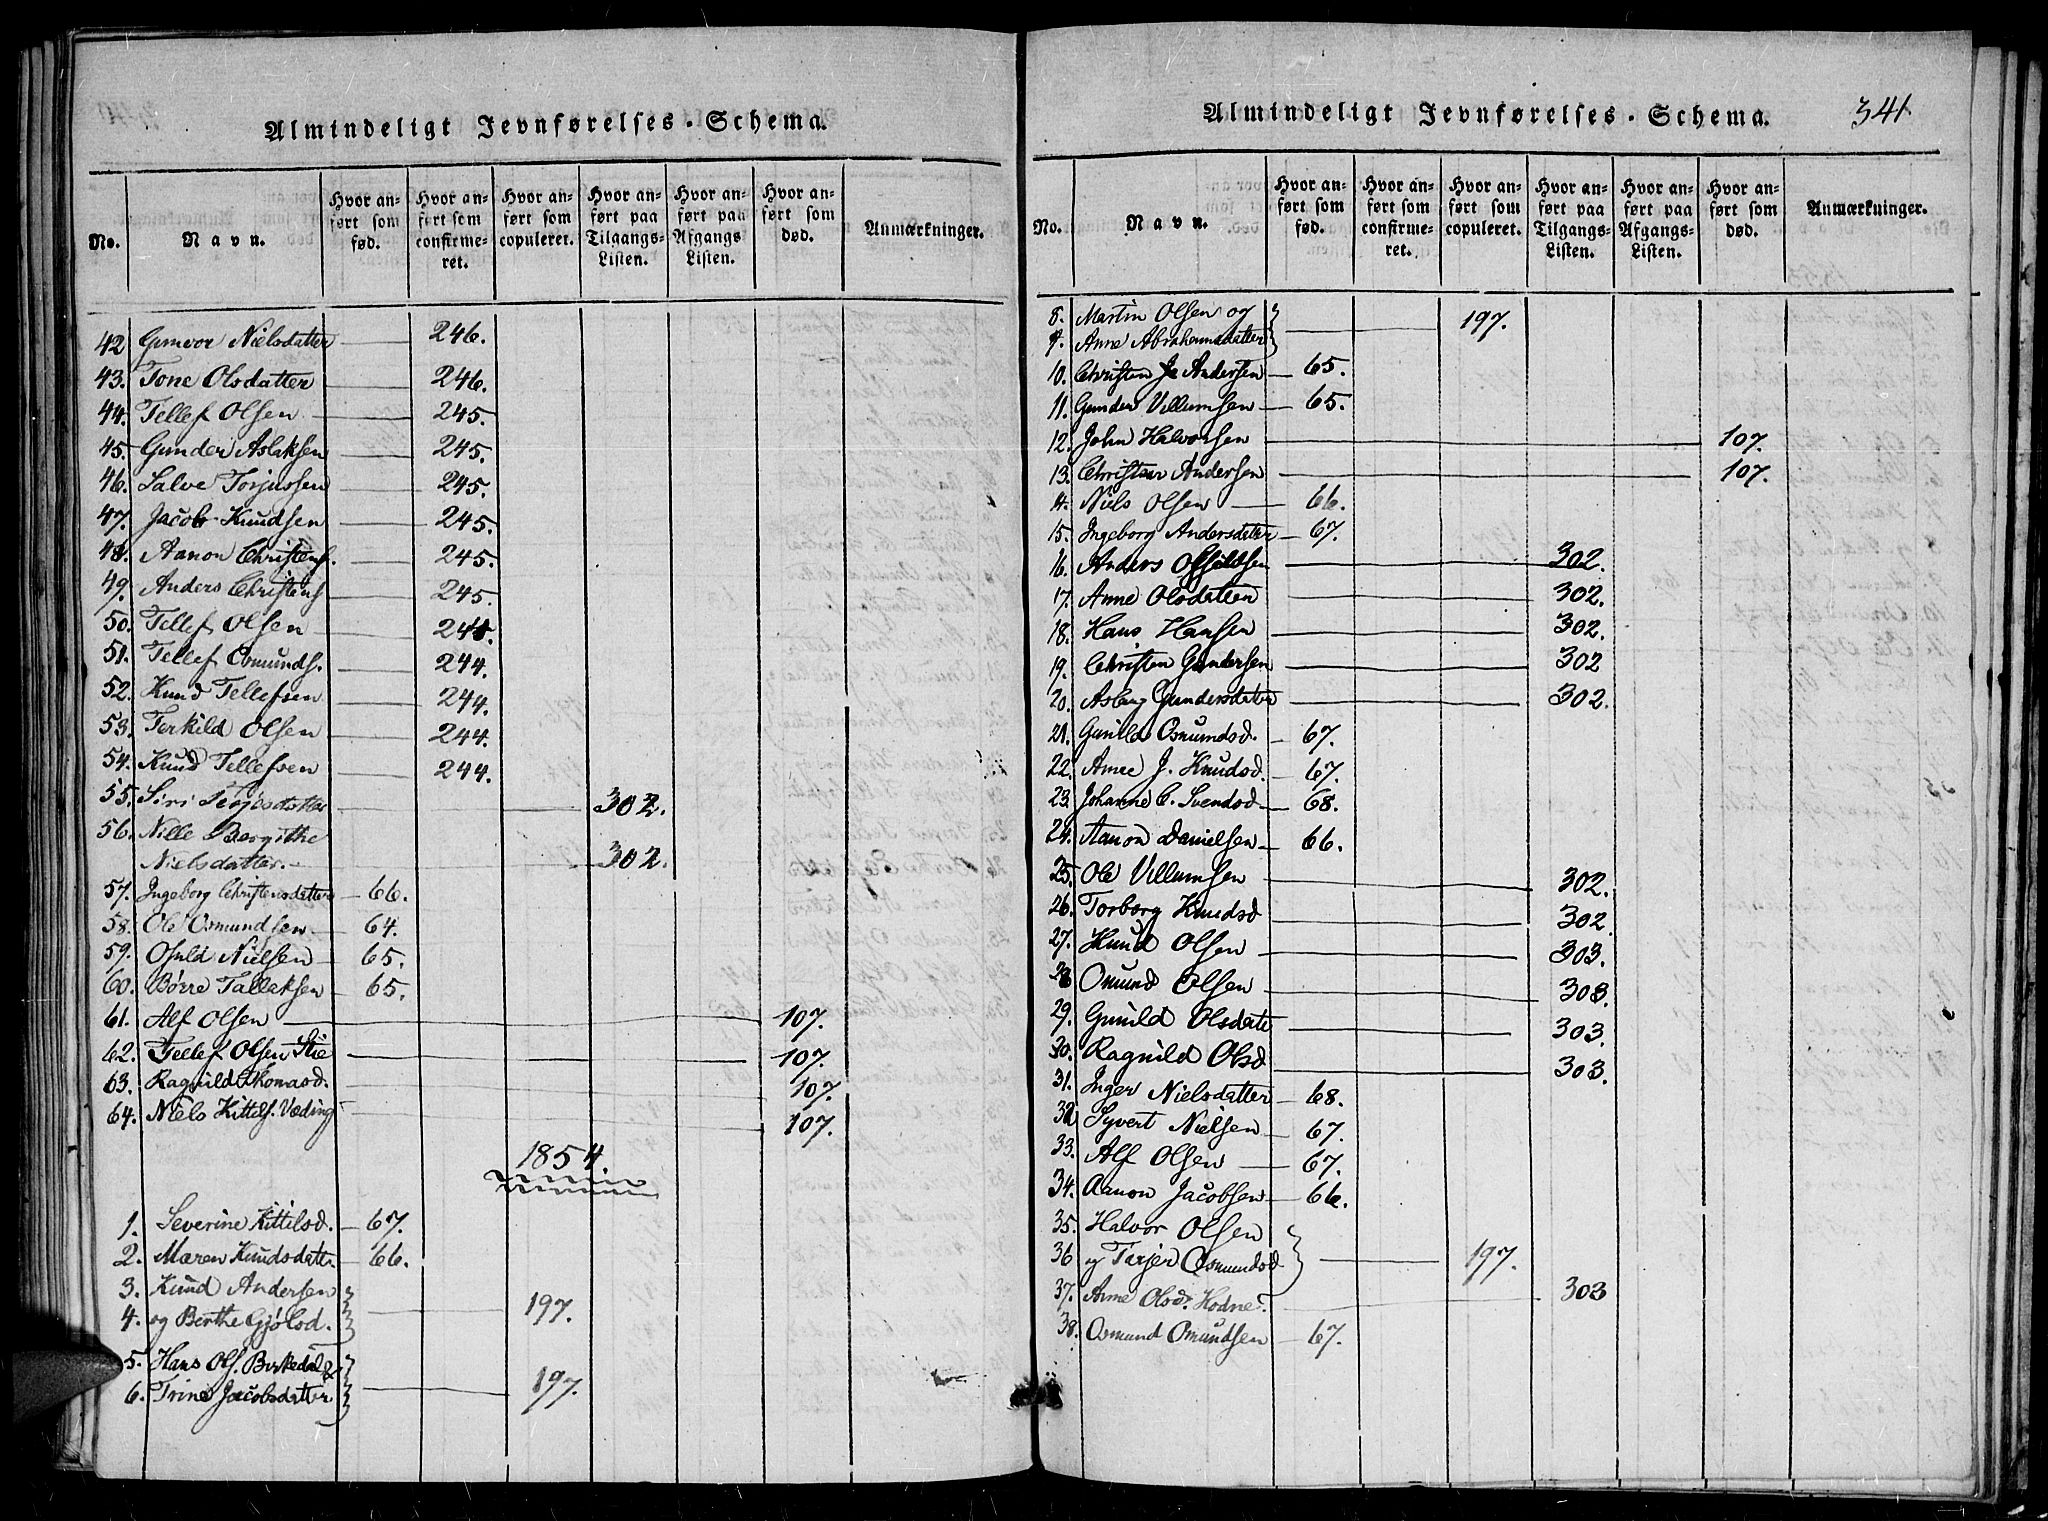 Almindeligt Jevnførelses-Schema.
No.
Navn.
Hvor anført som fød.
Hvor anført som confirmeret.
Hvor anført som copuleret.
Hvor anført paa Tilgangs-Listen.
Hvor anført paa Afgangs Listen.
Hvor anført som død.
Anmærkninger.
42 Gunvor Nielsdatter 246.
43. Tone Olsdatter 246.
44. Tellef Olsen 245.
45. Gunder Aslaksen 245.
46. Salve Torjussen 245.
47. Jacob Knudsen 245.
48. Aanon Christens. 245.
49. Anders Christens 245.
50. Tellef Olsen
51. Tellef Osmunds. 244.
52. Knud Tellefsen 244.
53. Terkild Olsen 244.
54. Knud Tellefsen 244.
55. Siri 302.
56. Nille Bergithe
Nielsdatter. 302.
57. Ingeborg Christensdatter 66.
58. Ole Osmundsen 64.
59. Osuld Nielsen 65.
60. Børre Tallaksen 65.
61. Alf Olsen 107.
62. Tellef Olsen Lie 107.
63. Ragnild Thomasd. 107.
64. Niels Kittels. Væding 107.
1854.
1. Severine Kittelsd. 67.
2. Maren Knudsdatt. 66.
3. Knud Andersen
4. og Berthe Gjølsd. 197.
5. Hans Ols. Birkedal &
6. Trine Jacobsdatter 197.
Almindeligt Jevnførelses-Schema. 341.
No.
Navn.
Hvor anført som fød.
Hvor anført som confirmeret.
Hvor anført som copuleret.
Hvor anført paa Tilgangs-Listen.
Hvor anført paa Afgangs-Listen.
Hvor anført som død.
Anmærkninger.
8. Martin Olsen og 197.
9. Anne Abrahamsdatter
10. Christen J. Andersen 65.
11. Gunder Villumsen 65.
12. John Halvorsen 107.
13. Christian Andersen 107.
14. Niels Olsen 66.
15. Ingeborg Andersdatter 67.
16. Anders 302.
17. Anne Olsdatter 302.
18. Hans Hansen 302.
19. Christen Gundersen 302
20. Aslaug Gundersdatter 302.
21. Gunild Osmundsd. 67.
22. Anne J. Knudsd. 67.
23. Johanne C. Svendsd 68.
24. Aanon Danielsen 66.
25. Ole Villumsen 302.
26. Torborg Knudsd 302.
27. Knud Olsen 303.
28 Omund Olsen 303.
29. Gunild Olsdatt 303.
30. Ragnild Olsd 303.
31. Inger Nielsdatter 68.
32 Syvert Nielsen 67.
33. Alf Olsen 67.
34. Aanon Jacobsen 66.
35. Halvor Olsen
36 og Tarjer Osmundsd 197.
37. Anne Olsd. Hodne. 303
38. Osmund Omundsen 67.